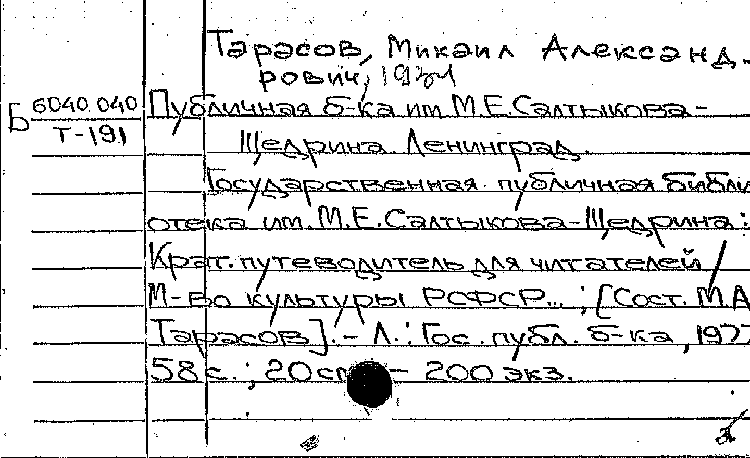 Тарасов, Михаил Александ-
рович, 1921
Б 6040.040 Публичная б-ка им. М.Е.Салтыкова-
Т-191 Щедрина. Ленинград.
Государственная публичная библи
отека им. М.Е.Салтыкова-Щедрина:
Крат. путеводитель для читателей /
М-во культуры РСФСР...; [Сост. М.А
Тарасов]. - Л.: Гос. публ. б-ка, 197
58 с.; 20 см - 200 экз.